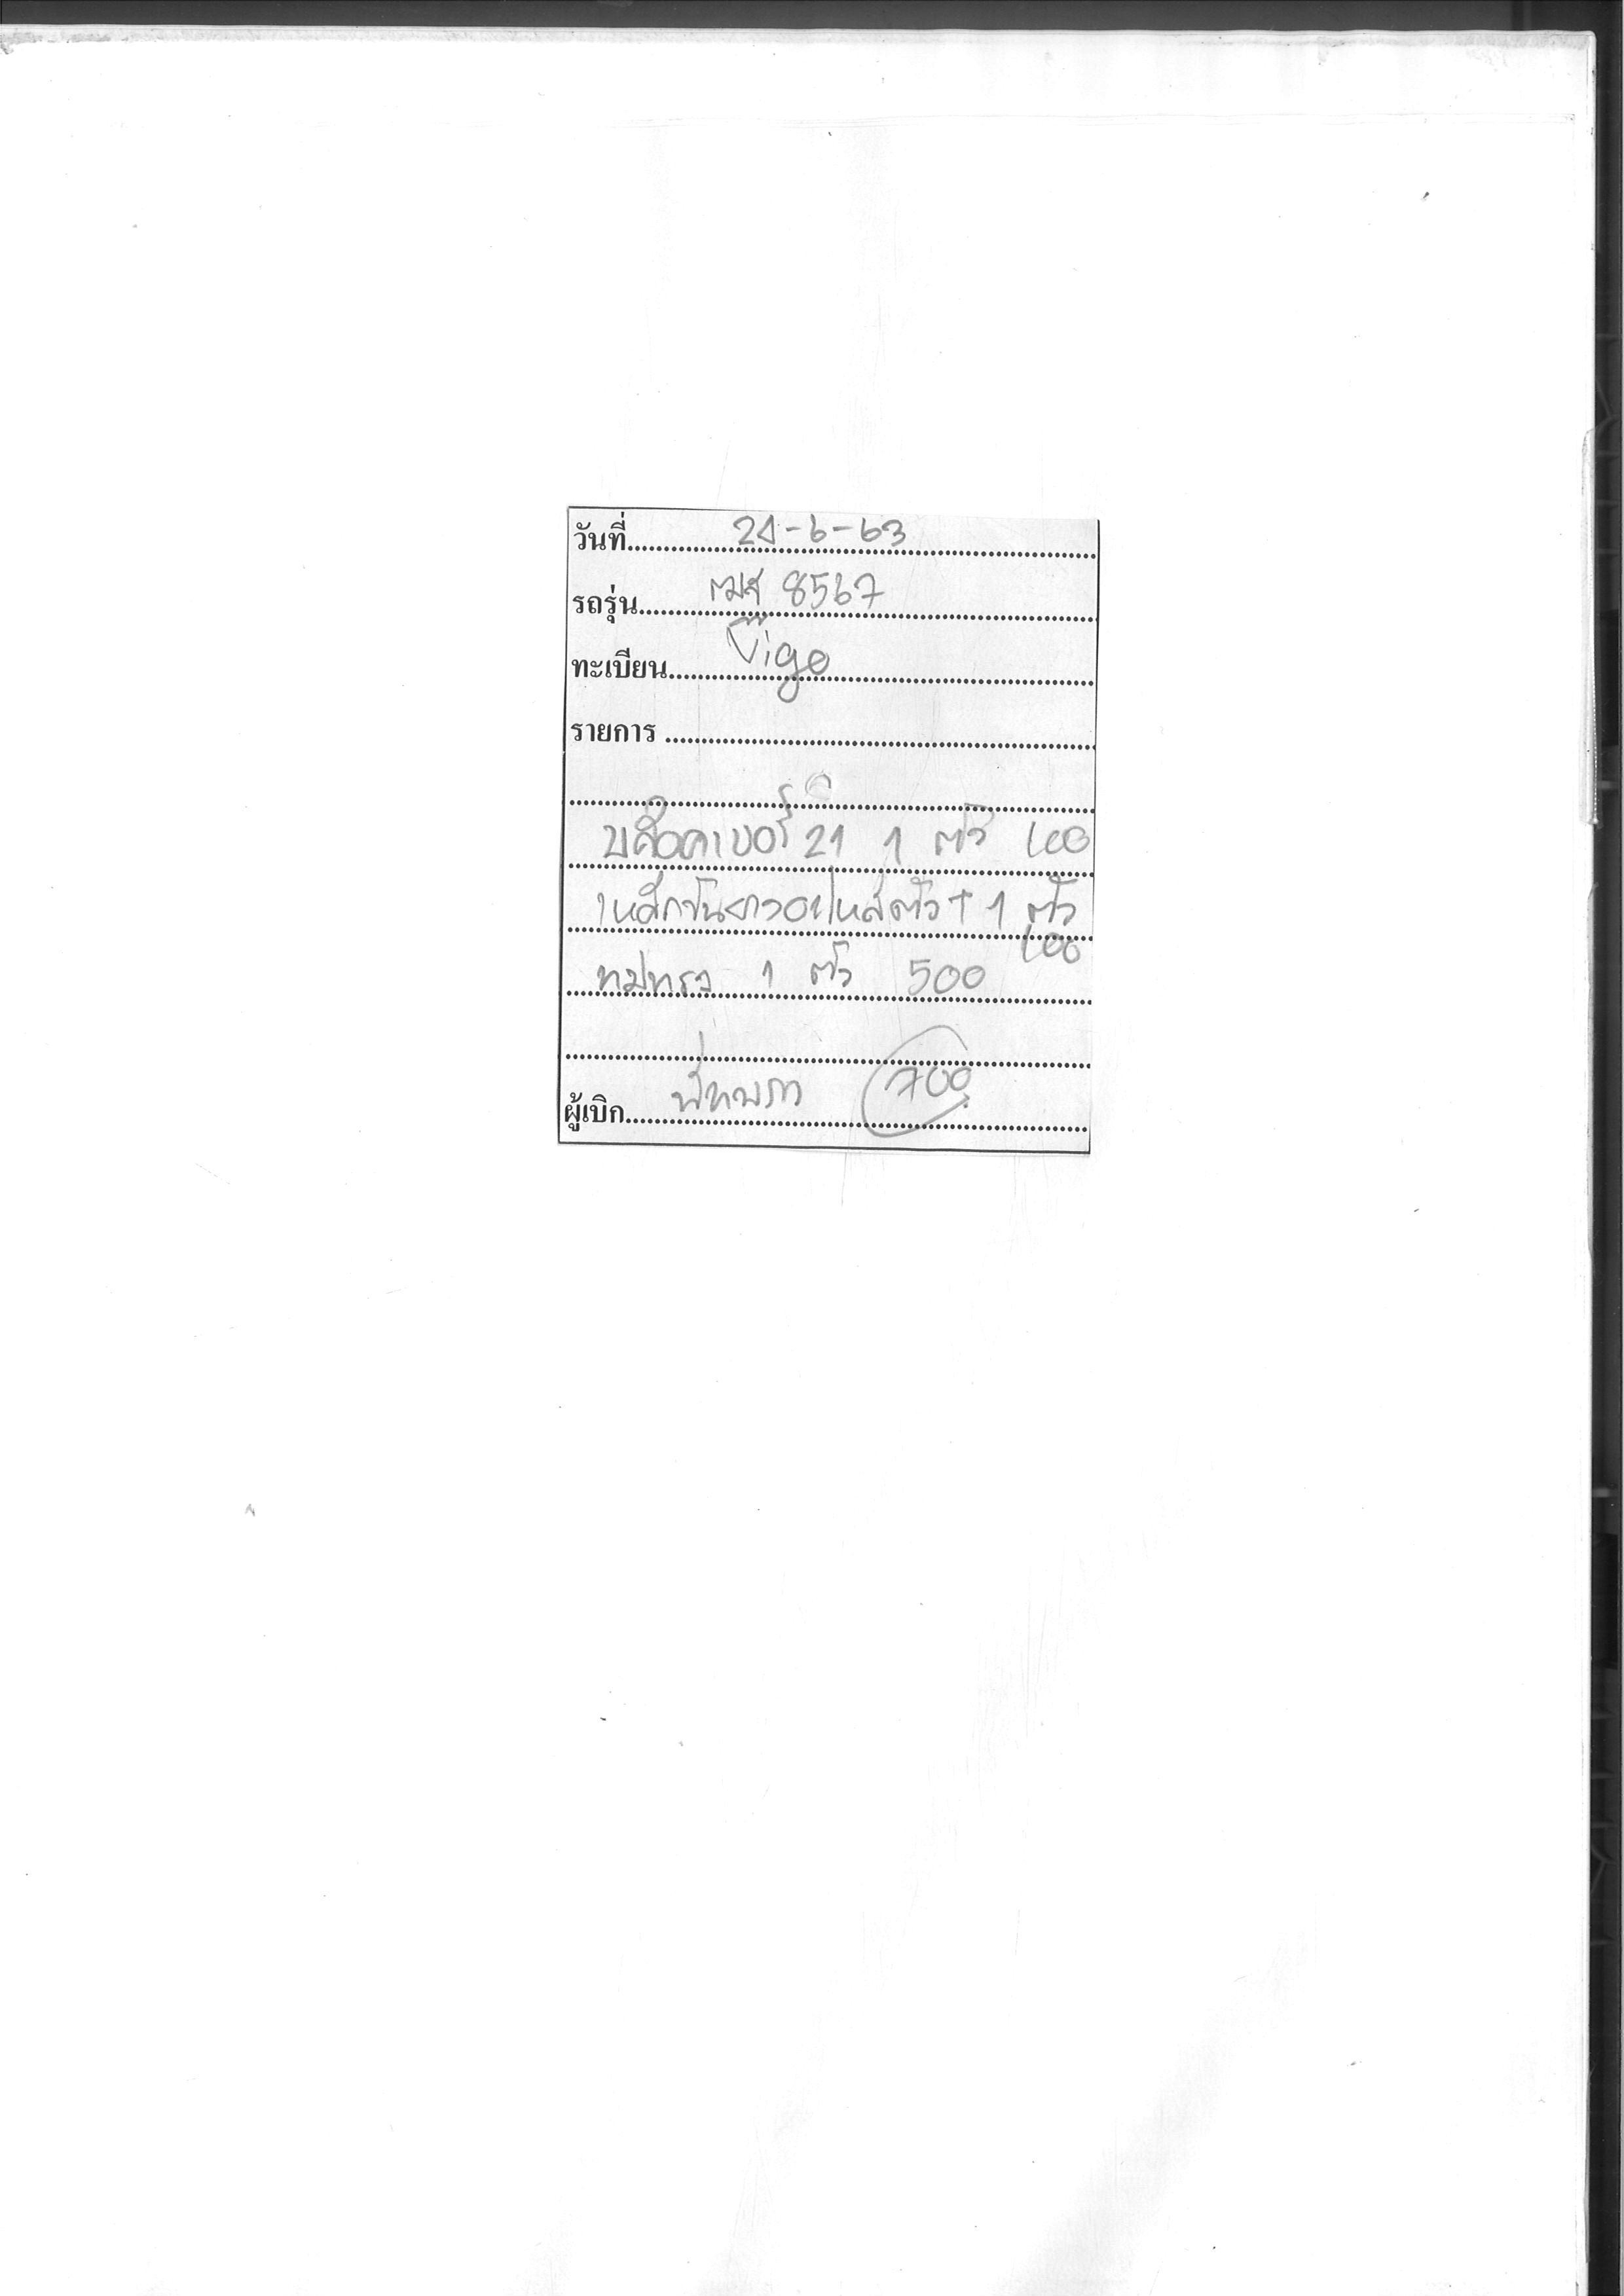 วันที่ 21-6-63
รถรุ่น ฒฬ 8567
ทะเบียน Vigo
รายการ
บล็อคเบอร์ 21 1 ตัว 100
เหล็กขันยาวอะไหล่ตัว T 1 ตัว
100
1 ตัว 500
ผู้เบิก 700